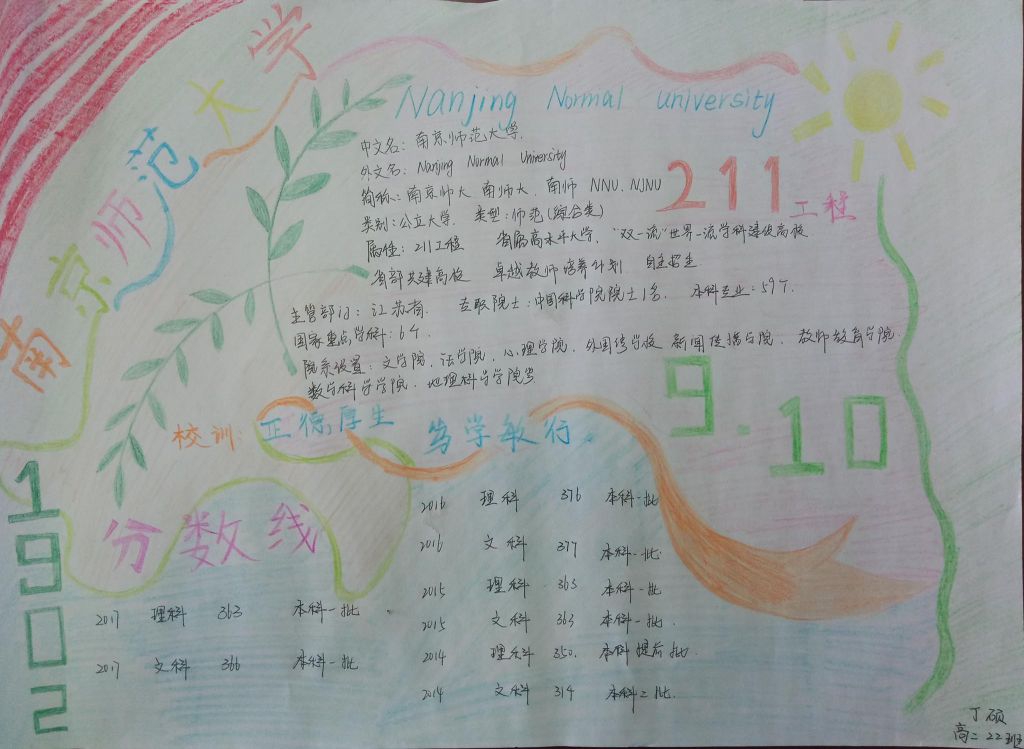 南京师范大学
Nanjing Normal University
中文名：南京师范大学.
外文名：Nanjing Normal University
简称：南京师大 南师大、南师 NNU、NJNU
211工程
类别：公立大学. 类型：师范(综合类)
属性：211工程 省属高水平大学、"双一流"世界一流学科建设高校
省部共建高校 卓越教师培养计划 自主招生
主管部门：江苏省. 专职院士：中国科学院院士1名. 本科专业：59个.
国家重点学科：6个.
院系设置：文学院、法学院、心理学院、外国语学校 新闻传播学院、教师教育学院.
数学科学学院、地理科学学院等
9.10
校训：正德厚生 笃学敏行
1902
分数线
2017 理科 363 本科一批
2017 文科 366 本科一批
2016 理科 376 本科一批
2016 文科 377 本科一批.
2015 理科 365 本科一批
2015 文科 363 本科一批.
2014 理科 350. 本科提前批.
2014 文科 314 本科二批.
丁硕
高二22班